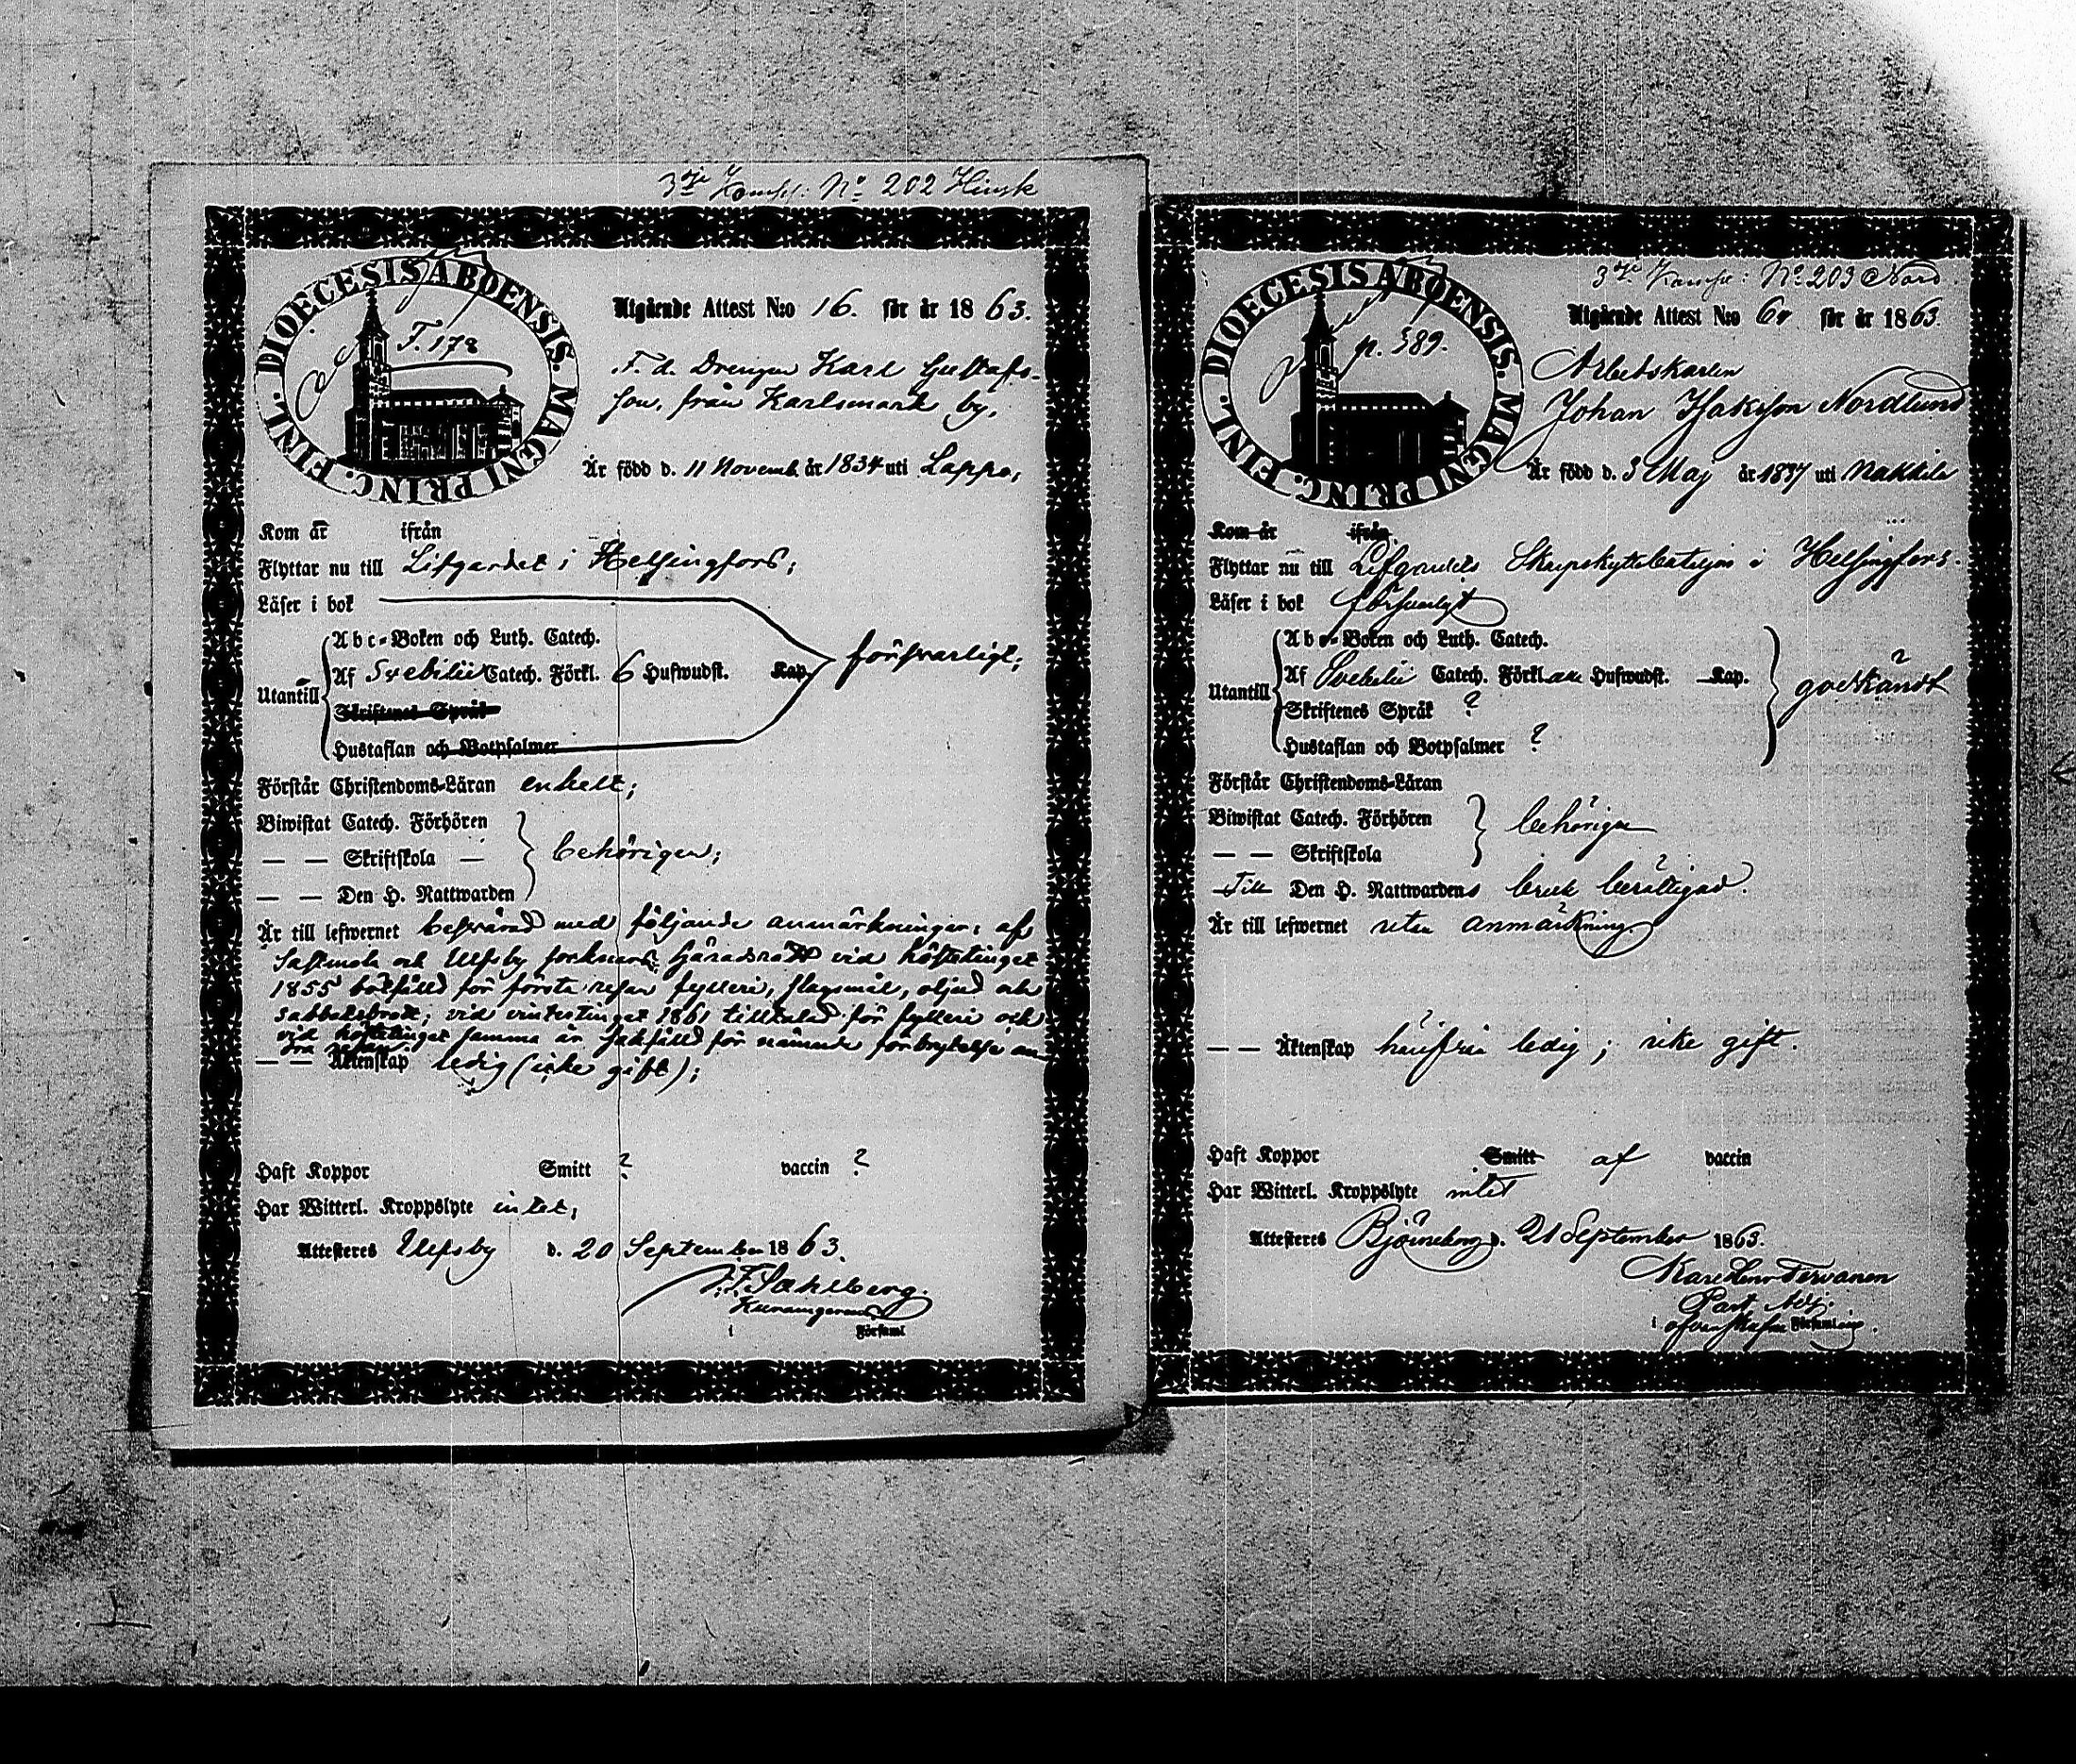 3dje Komp: No 202 Hinsk
DIOECESIS ABOENSIS. MAGNI PRINC. FINL.
F. 178
Utgående Attest N:o 16. för år 1863.
F. d. Drengen Karl Gustafs-
son, från Karlsmark by,
Är född d. 11 Novemb. år 1834 uti Lappo,
Kom år ifrån
Flyttar nu till Lifgardet i Helsingfors;
Läser i bok
Abc-Boken och Luth. Catech.
Utantill Af Svebilii Catech. Förkl. 6 Hufwudst. Kap. försvarligt;
Skriftenes Språk
Hustaflan och Botpsalmer
Förstår Christendoms-Läran enkelt;
Biwistat Catech. Förhören
— — Skriftskola — behörigen;
— — Den H. Nattwarden
Är till lefwernet besvärad med följande anmärkningar: af
Sastmola och Ulfsby socknars Häradsrätt vid hösttinget
1855 bötfälld för första resan fylleri, slagsmål, oljud och
sabbatsbrott; vid vintertinget 1861 tilltalad för fylleri och
vid hösttinget samma år sakfälld för nämnde förbrytelse an-
dra resan.
— — Äktenskap ledig (icke gift);
Haft Koppor Smitt ? vaccin ?
Har Witterl. Kroppslyte intet;
Attesteres Ulfsby d. 20 September 1863.
F. F. Sahlberg.
i Församl
3dje Komp: No 203 Nord.
DIOECESIS ABOENSIS. MAGNI PRINC. FINL.
p. 389.
Utgående Attest N:o 60 för år 1863.
Arbetskarlen
Johan Isaksson Nordlund
Är född d. 3 Maj år 1837 uti Nakkila
Kom år ifrån
Flyttar nu till Lifgardets Skarpskyttebataljon i Helsingfors.
Läser i bok försvarligt
Abc-Boken och Luth. Catech.
Utantill Af Svebilii Catech. Förkl. alla Hufwudst. Kap. godkändt
Skriftenes Språk ?
Hustaflan och Botpsalmer ?
Förstår Christendoms-Läran
Biwistat Catech. Förhören
— — Skriftskola behörigen
Till Den H. Nattwardens bruk berättigad.
Är till lefwernet utan anmärkning.
— — Äktenskap härifrån ledig; icke gift.
Haft Koppor Smitt af vaccin
Har Witterl. Kroppslyte intet
Attesteres Björneborg d. 21 September 1863.
Karl Henr Tervanen
Past. Adj.
i ofvanskrifne Församling.